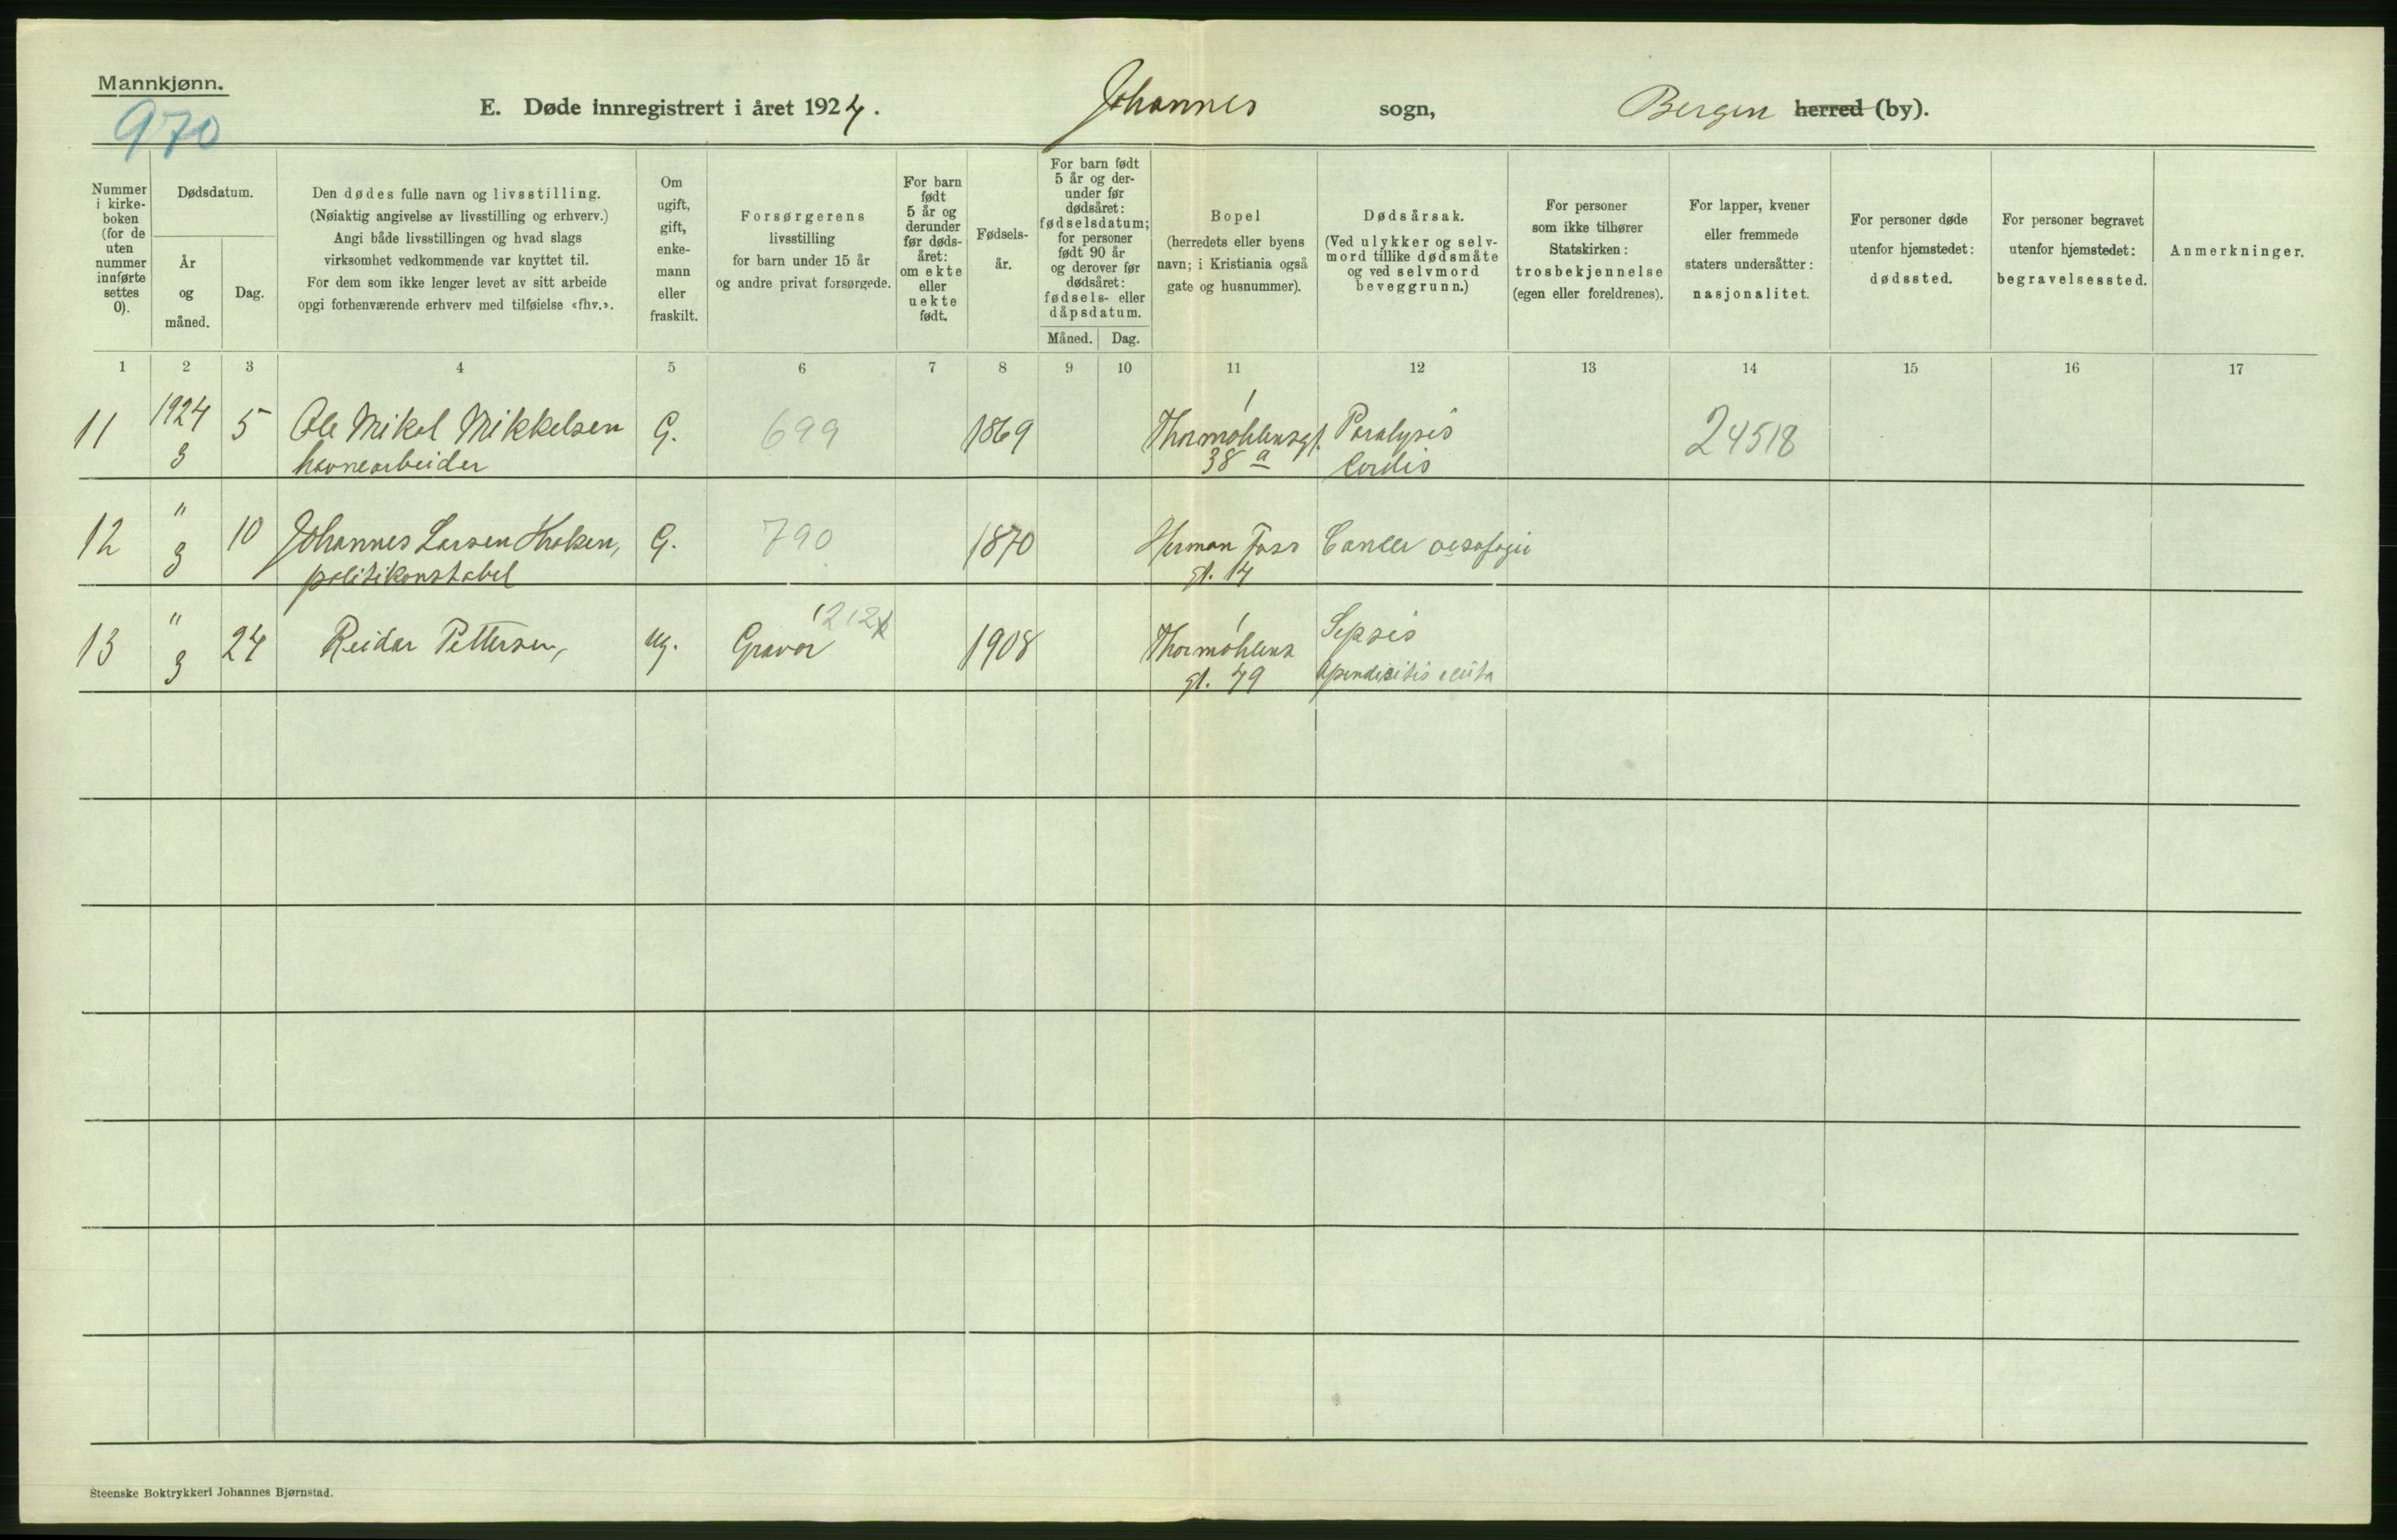 Mannkjønn.
970
E. Døde innregistrert i året 1924. Johannes sogn, Bergen herred (by).
Nummer i kirke- boken (for de uten nummer innførte settes 0).
Dødsdatum.
År og måned.
Dag.
Den dødes fulle navn og livsstilling.
(Nøiaktig angivelse av livsstilling og erhverv.)
Angi både livsstillingen og hvad slags
virksomhet vedkommende var knyttet til.
For dem som ikke lenger levet av sitt arbeide
opgi forhenværende erhverv med tilføielse «fhv.».
Om ugift, gift, enke- mann eller fraskilt.
Forsørgerens
livsstilling
for barn under 15 år
og andre privat forsørgede.
For barn født 5 år og derunder før døds- året: om ekte eller uekte født.
Fødsels- år.
For barn født 5 år og der- under før dødsåret: fødselsdatum; for personer født 90 år og derover før dødsåret: fødsels- eller dåpsdatum.
Måned. Dag.
Bopel
(herredets eller byens
navn; i Kristiania også
gate og husnummer).
Dødsårsak.
(Ved ulykker og selv-
mord tillike dødsmåte
og ved selvmord
beveggrunn.)
For personer
som ikke tilhører
Statskirken:
trosbekjennelse
(egen eller foreldrenes).
For lapper, kvener
eller fremmede
staters undersåtter:
nasjonalitet.
For personer døde
utenfor hjemstedet:
dødssted.
For personer begravet
utenfor hjemstedet:
begravelsessted.
Anmerkninger.
1 2 3 4 5 6 7 8 9 10 11 12 13 14 15 16 17
11 1924 5 Ole Mikal Mikkelsen G. 699 1869 Thormøhlensgt. Paralysis 24518
3 havnearbeider 38 a Cordis
12 " 10 Johannes Larsen Kroken, G. 790 1870 Herman Foss Cancer oesofagii
3 politikonstabel gt. 14
13 " 24 Reidar Pettersen, ug. Gravør 1212 1908 Thormøhlens Sepsis
3 gt. 49 Apendisitis acuta
Steenske Boktrykkeri Johannes Bjørnstad.